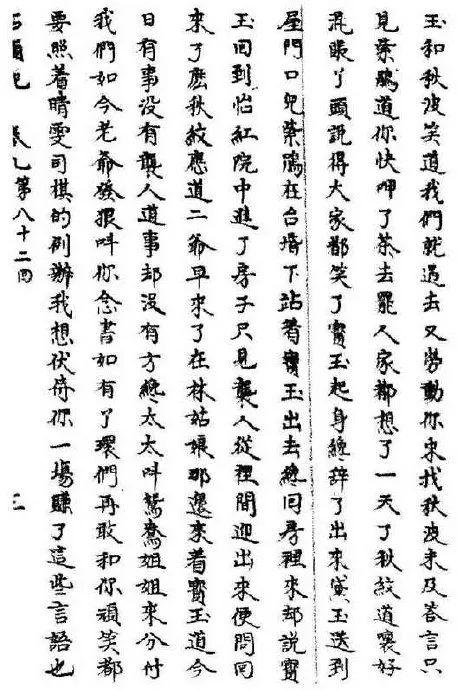 玉和秋波笑道我們就過去又勞動你來找秋波未及答言只
見紫鵑道你快呷了茶去罷人家都想了一天了秋紋道嚷好
混賬丫頭說得大家都笑了寶玉起身纔辞了出來黛玉送到
屋門口兒紫鵑在台堦下站着寶玉出去纔回房裡來却說寶
玉回到怡紅院中進了房子只見襲人從裡間迎出來便問回
來了麽秋紋應道二爷早來了在林姑娘那邊來着寶玉道今
日有事没有襲人道事却没有方纔太太叫鴛鴦姐姐來分付
我們如今老爺發狠叫你念書如有了環們再敢和你頑笑都
要照着晴雯司棋的例辦我想伏侍你一塲賺了這些言語也
石頭記 卷九第八十二回 三